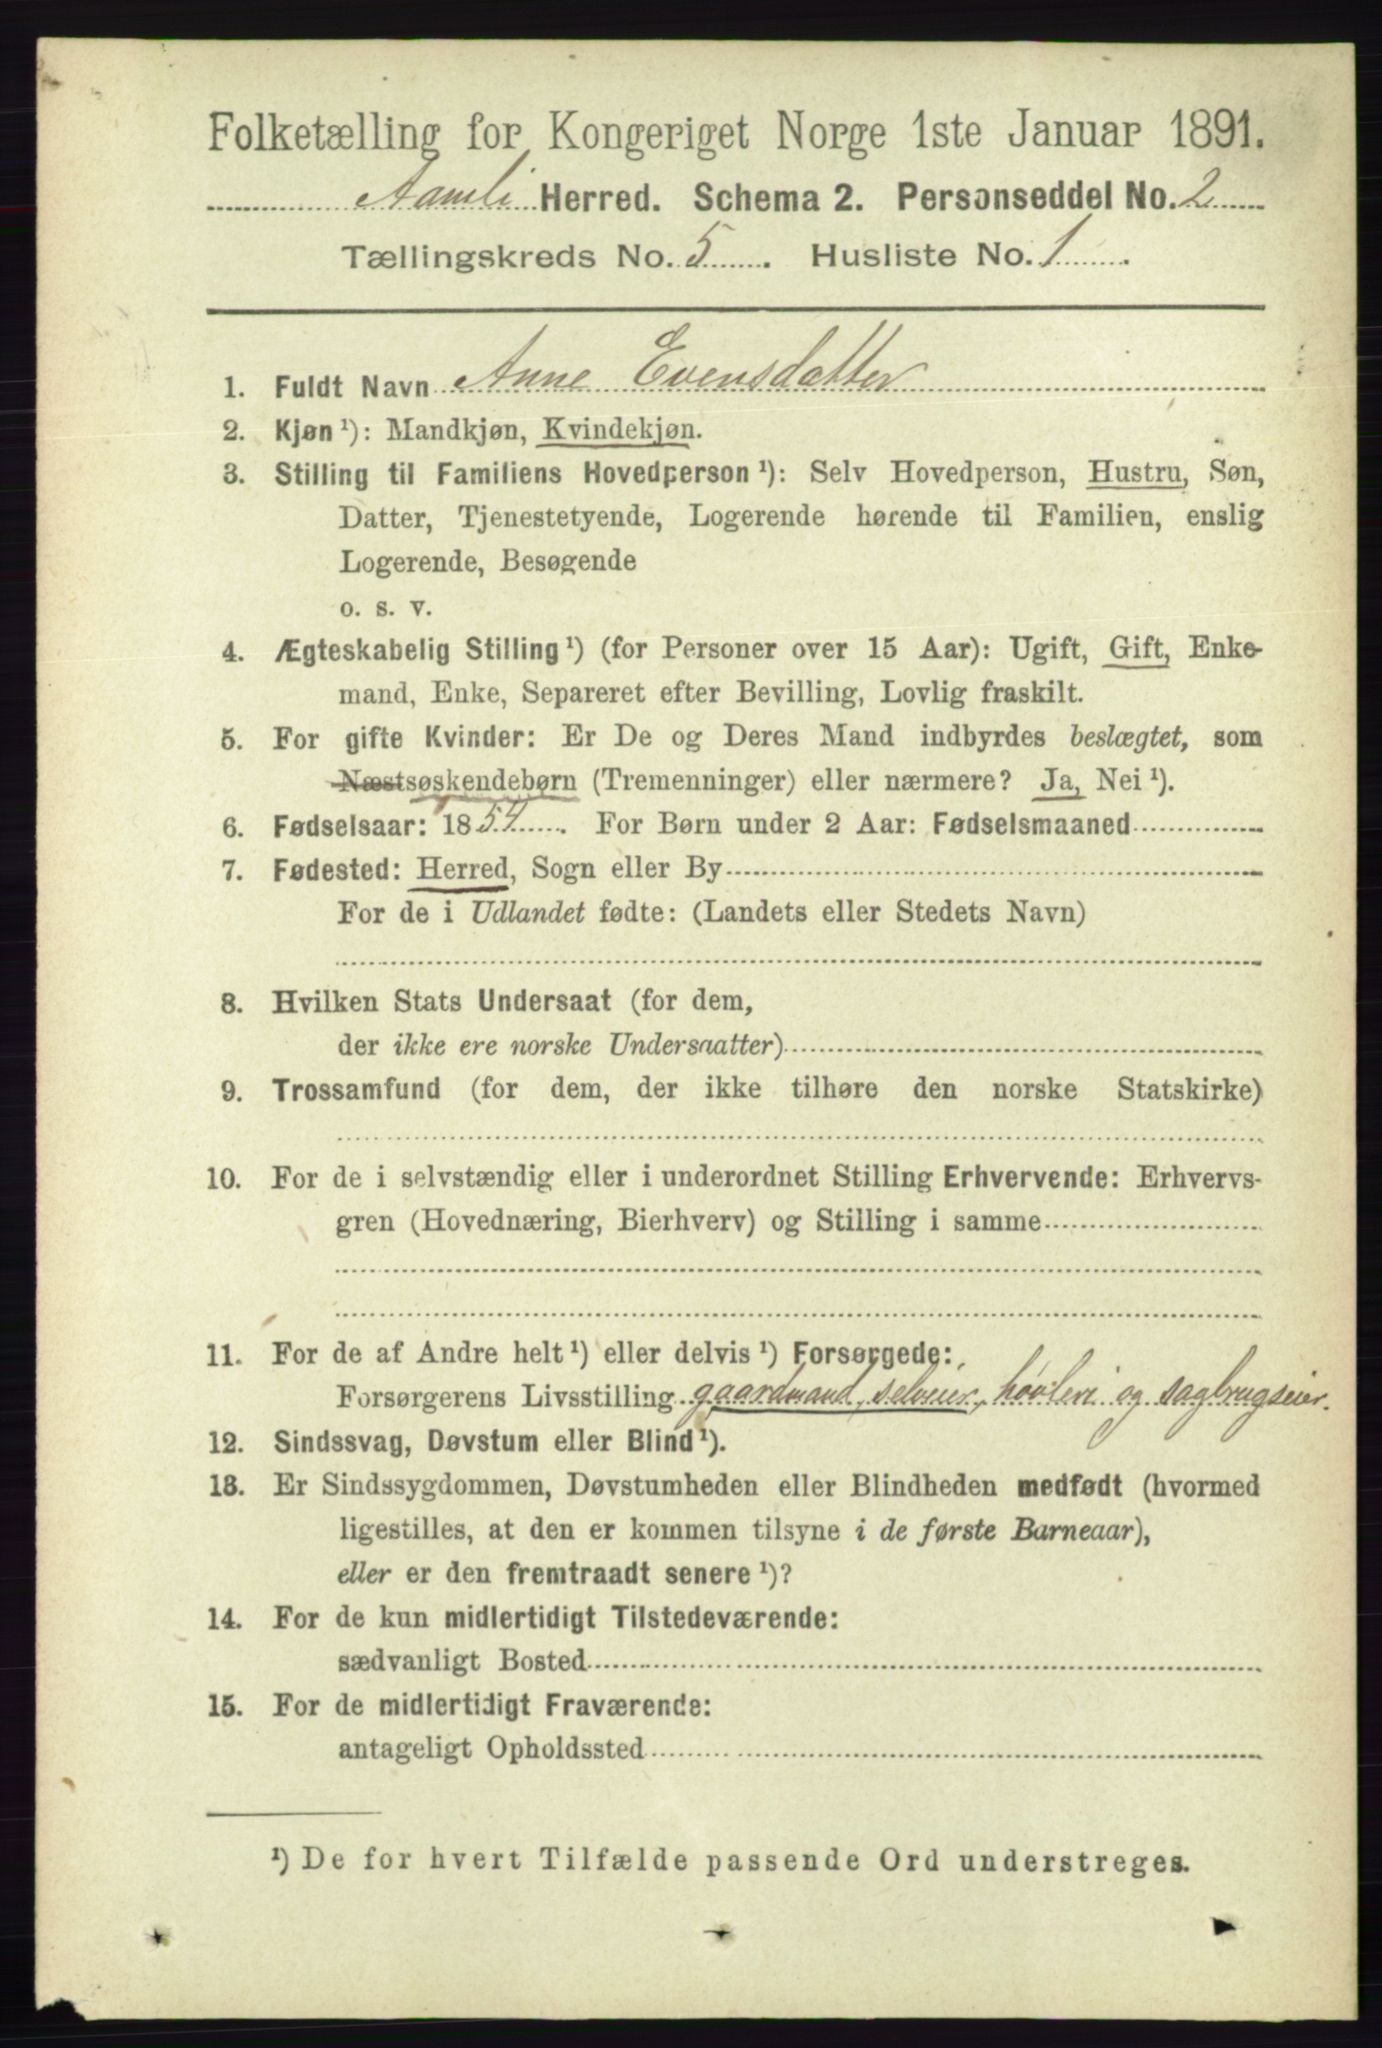 Folketælling for Kongeriget Norge 1ste Januar 1891.
Aamli Herred. Schema 2. Personseddel No. 2
Tællingskreds No. 5. Husliste No. 1.
1. Fuldt Navn Anne Evensdatter
2. Kjøn ¹): Mandkjøn, Kvindekjøn.
3. Stilling til Familiens Hovedperson ¹): Selv Hovedperson, Hustru, Søn,
Datter, Tjenestetyende, Logerende hørende til Familien, enslig
Logerende, Besøgende
o. s. v.
4. Ægteskabelig Stilling ¹) (for Personer over 15 Aar): Ugift, Gift, Enke-
mand, Enke, Separeret efter Bevilling, Lovlig fraskilt.
5. For gifte Kvinder: Er De og Deres Mand indbyrdes beslægtet, som
Næstsøskendebørn (Tremenninger) eller nærmere? Ja, Nei ¹).
6. Fødselsaar: 1854. For Børn under 2 Aar: Fødselsmaaned
7. Fødested: Herred, Sogn eller By
For de i Udlandet fødte: (Landets eller Stedets Navn)
8. Hvilken Stats Undersaat (for dem,
der ikke ere norske Undersaatter)
9. Trossamfund (for dem, der ikke tilhøre den norske Statskirke)
10. For de i selvstændig eller i underordnet Stilling Erhvervende: Erhvervs-
gren (Hovednæring, Bierhverv) og Stilling i samme
11. For de af Andre helt ¹) eller delvis ¹) Forsørgede:
Forsørgerens Livsstilling gaardmand, selveier, høvleri og sagbrugseier.
12. Sindssvag, Døvstum eller Blind ¹).
13. Er Sindssygdommen, Døvstumheden eller Blindheden medfødt (hvormed
ligestilles, at den er kommen tilsyne i de første Barneaar),
eller er den fremtraadt senere ¹)?
14. For de kun midlertidigt Tilstedeværende:
sædvanligt Bosted
15. For de midlertidigt Fraværende:
antageligt Opholdssted
¹) De for hvert Tilfælde passende Ord understreges.